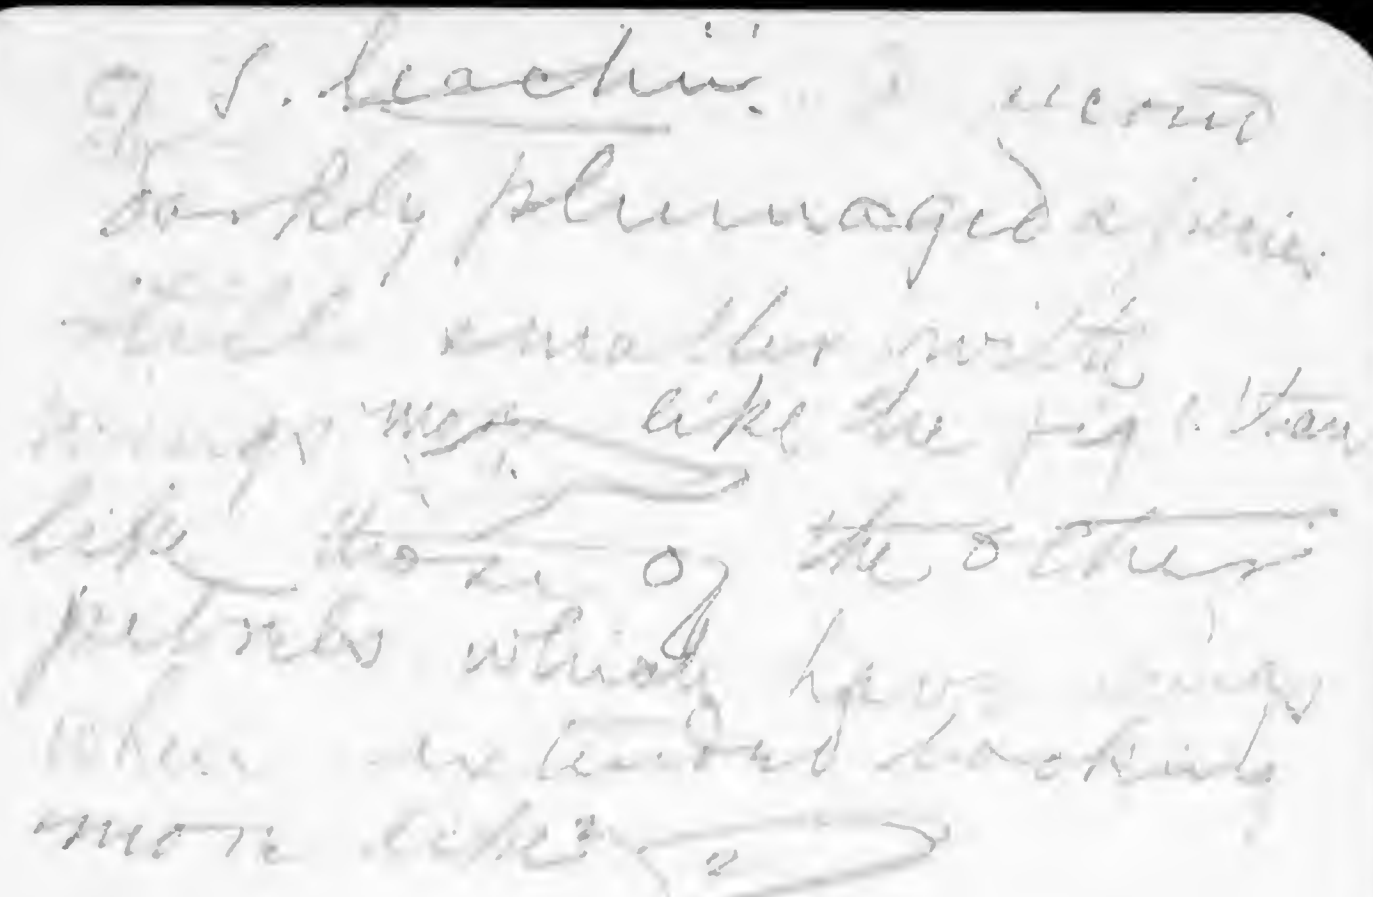 of S. leachii
darkly plumaged
smaller with
wings more like the
like those of the others
petrels which have wings
when extended looking
more like